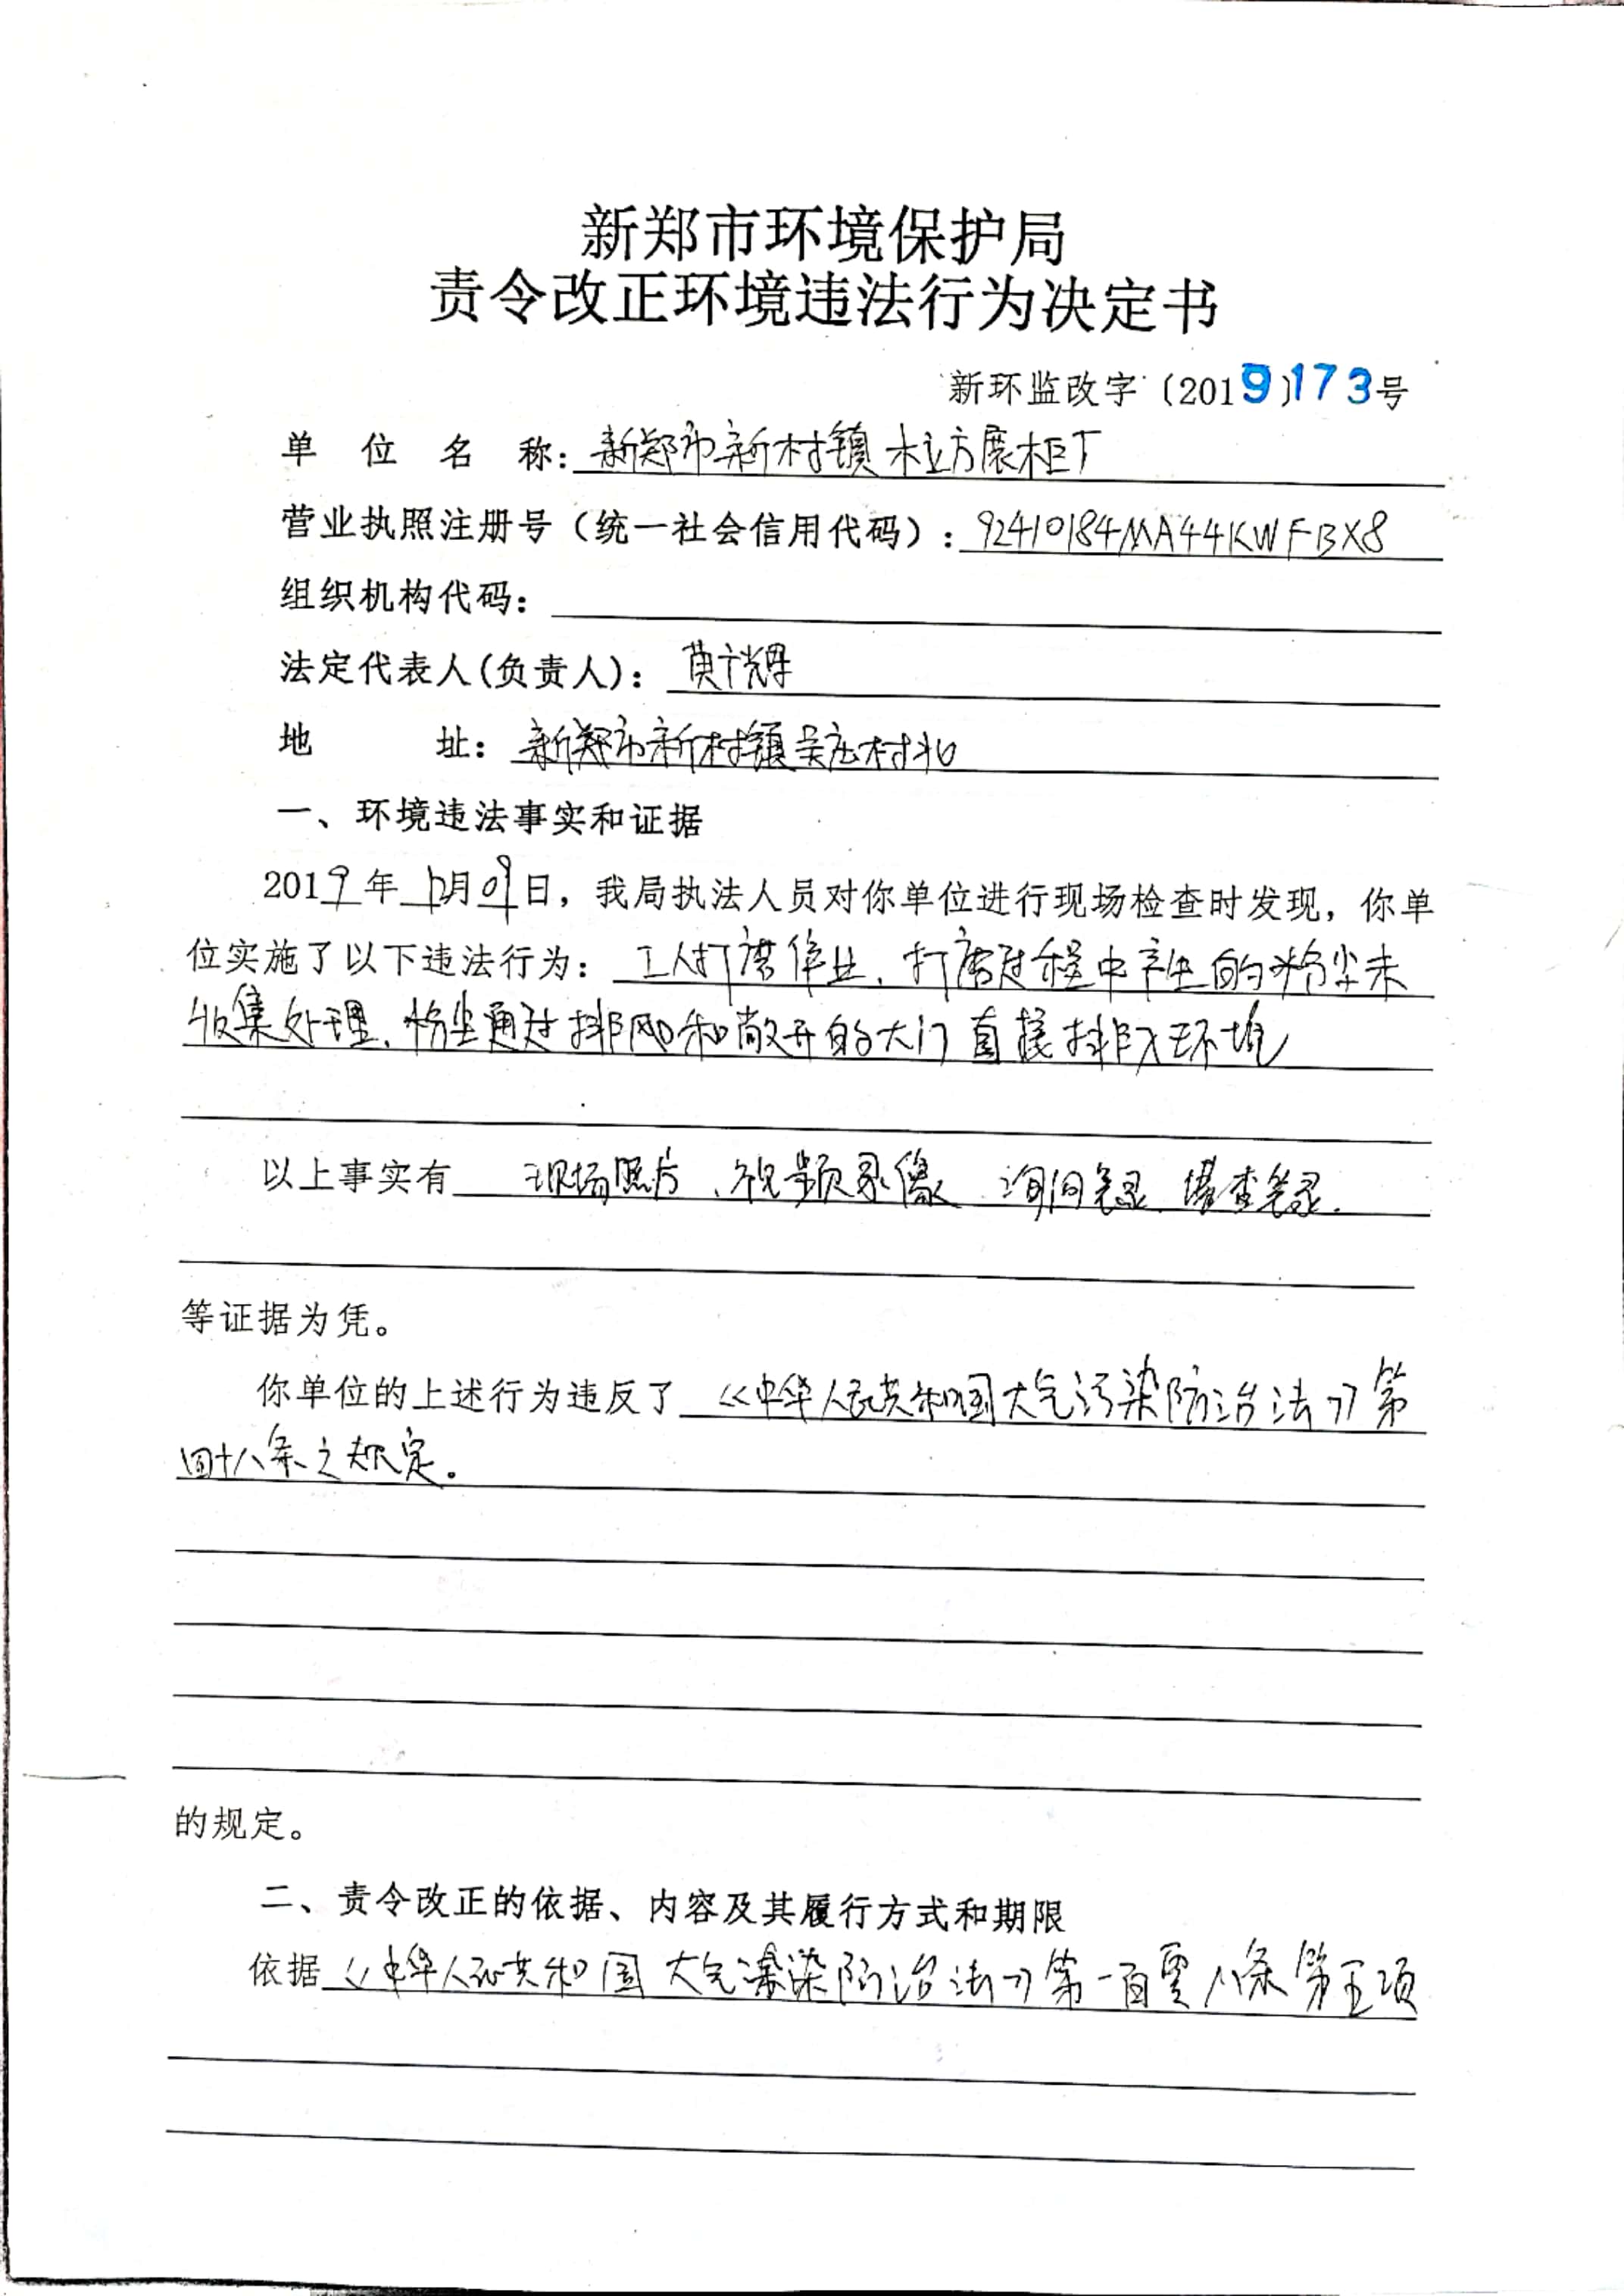 新郑市环境保护局
责令改正环境违法行为决定书
新环监改字〔2019〕173号
单位名称：新郑市新村镇木立方展柜厂
营业执照注册号（统一社会信用代码）：92410184MA44KWFBX8
组织机构代码：
法定代表人(负责人)：黄辉
地址：新郑市新村镇吴庄村北
一、环境违法事实和证据
2019年 月09日，我局执法人员对你单位进行现场检查时发现，你单
位实施了以下违法行为：工人打磨作业、打磨过程中产生的粉尘未
收集处理、粉尘通过排风和敞开的大门直接排入环境
以上事实有 现场照片、视频录像、询问笔录、堪查笔录、
等证据为凭。
你单位的上述行为违反了《中华人民共和国大气污染防治法》第
四十八条之规定。
的规定。
二、责令改正的依据、内容及其履行方式和期限
依据《中华人民共和国大气污染防治法》第一百零八条第五项